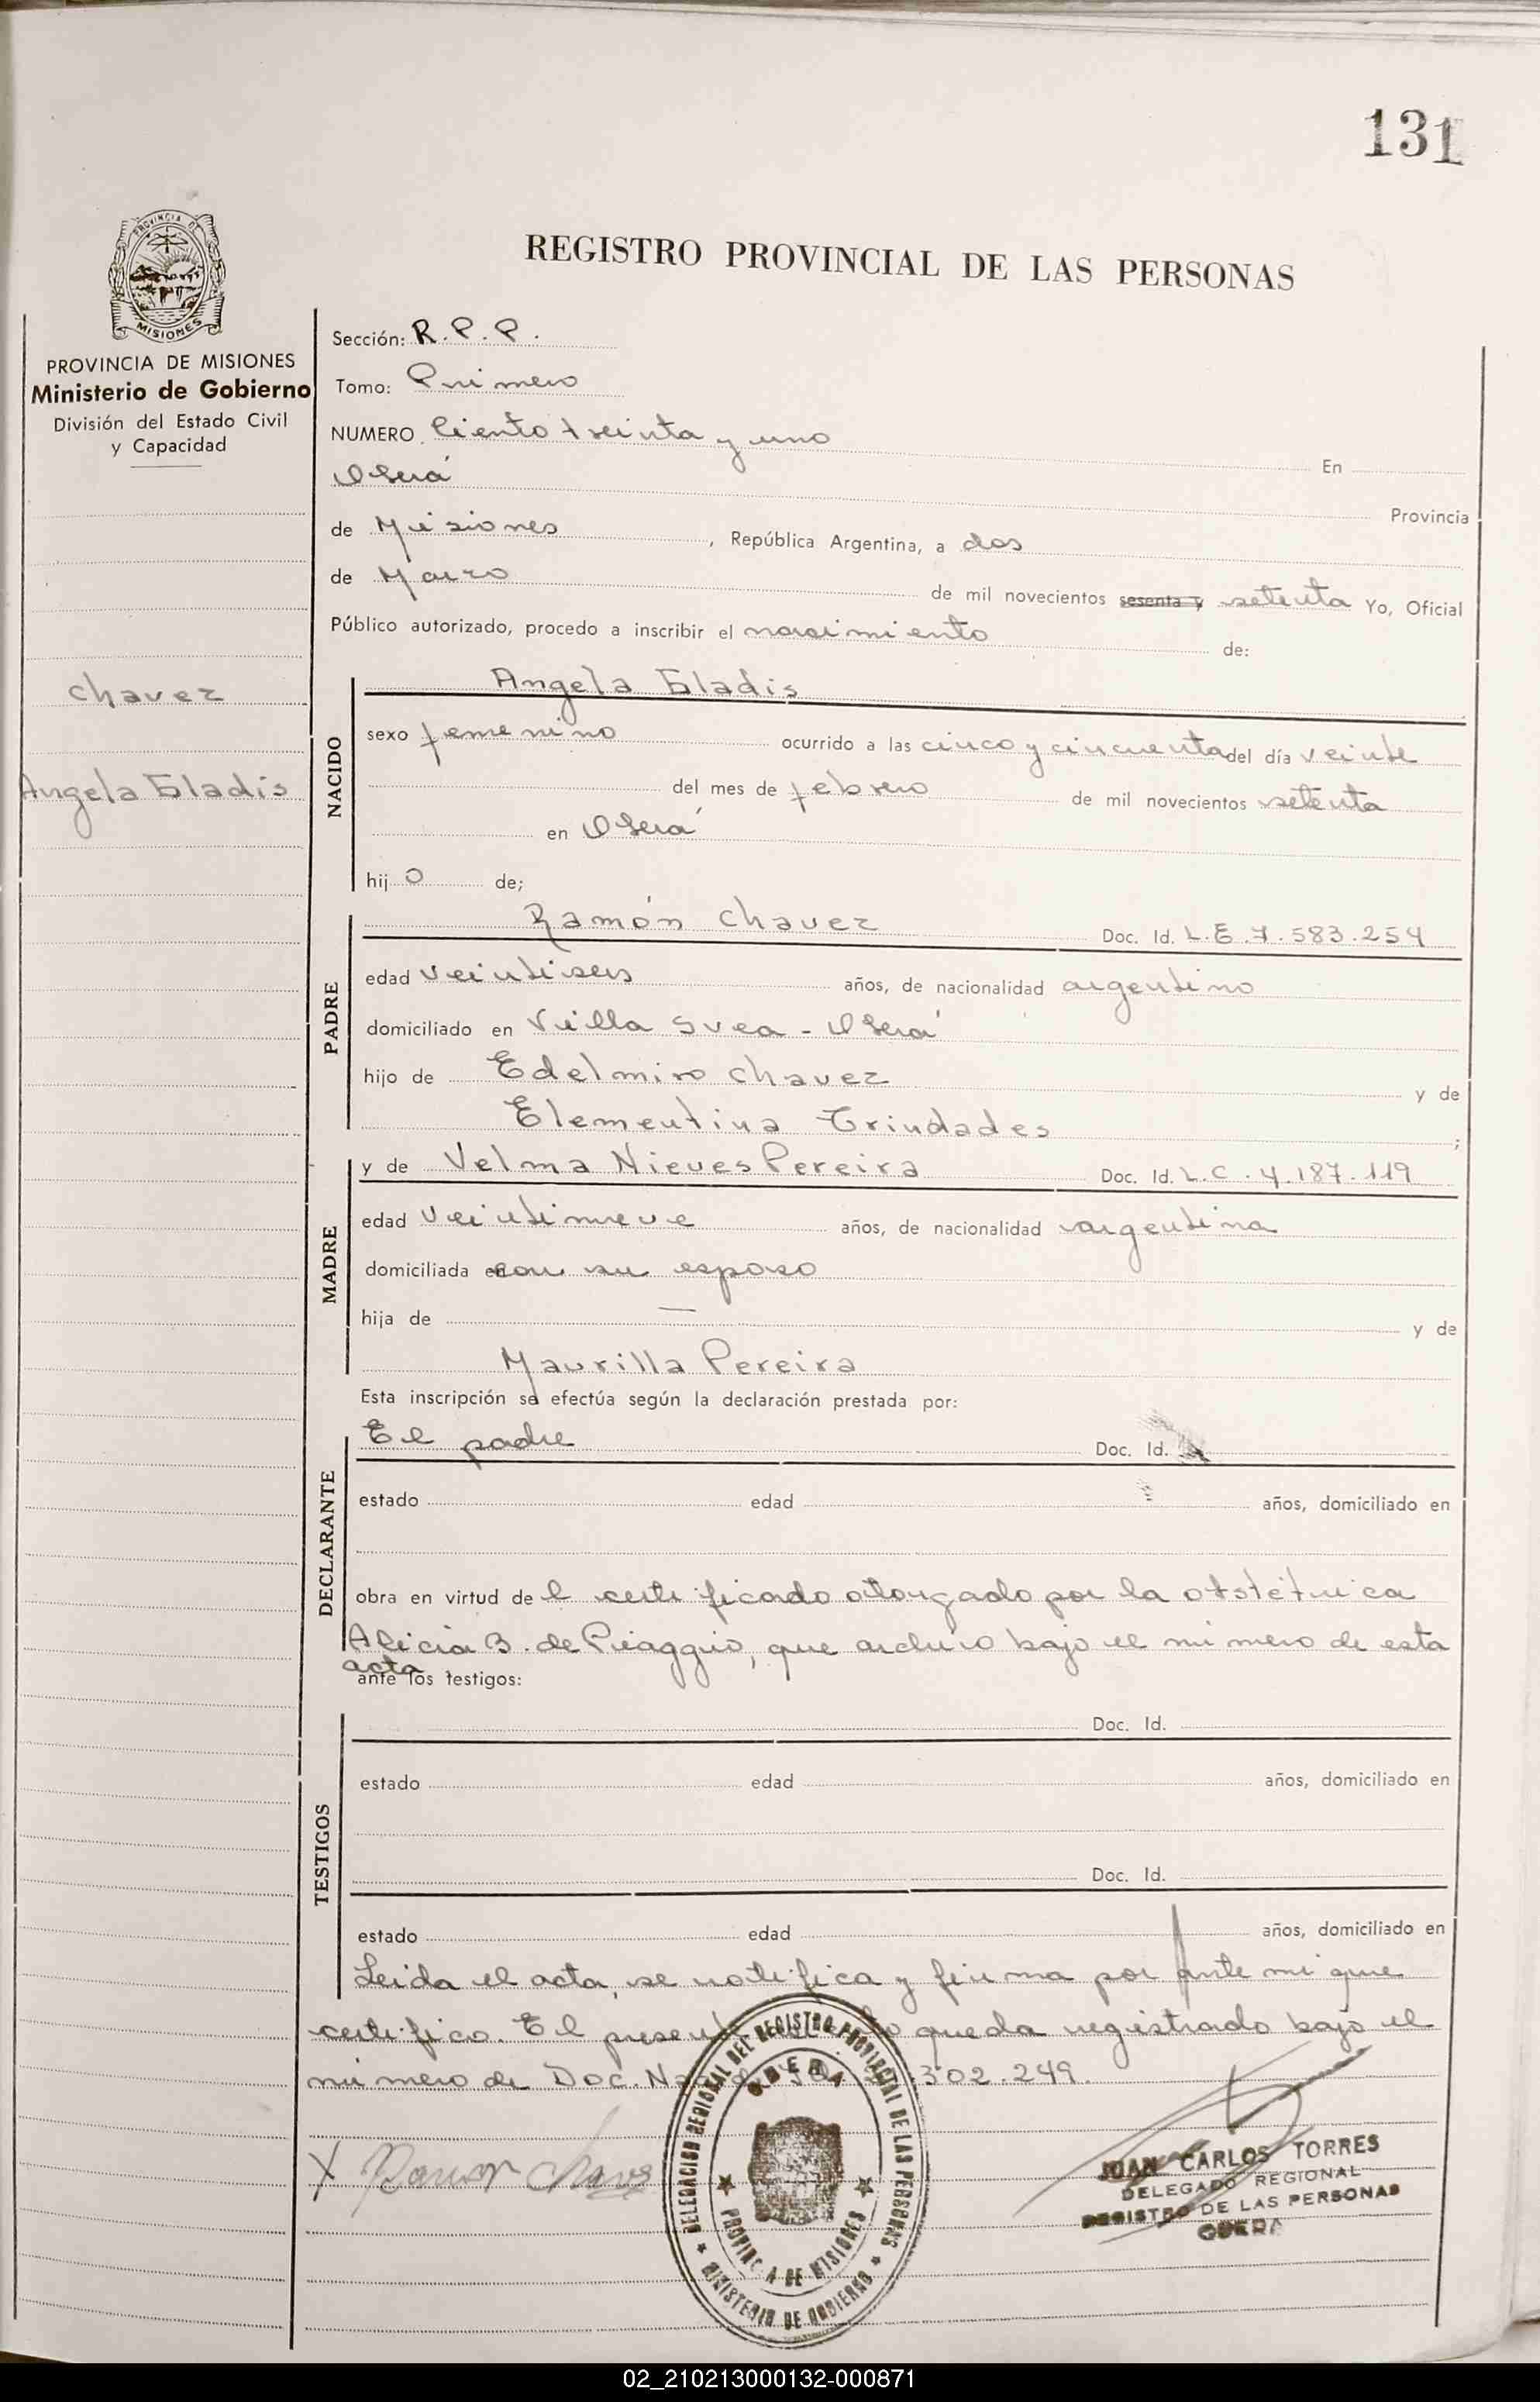 131
PROVINCIA DE
MISIONES
PROVINCIA DE MISIONES
Ministerio de Gobierno
División del Estado Civil
y Capacidad
Chavez
Angela Gladis
REGISTRO PROVINCIAL DE LAS PERSONAS
Sección: R.P.P.
Tomo: Primero
NUMERO Ciento treinta y uno En
Oberá Provincia
de Misiones, República Argentina, a dos
de Marzo de mil novecientos sesenta y setenta Yo, Oficial
Público autorizado, procedo a inscribir el nacimiento de:
NACIDO
Angela Gladis
sexo femenino ocurrido a las cinco y cincuenta del día veinte
del mes de febrero de mil novecientos setenta
en Oberá
hijo de;
PADRE
Ramón Chavez Doc. Id. L.E.7.583.254
edad veintiseis años, de nacionalidad argentino
domiciliado en Villa Svea - Oberá
hijo de Edelmiro Chavez y de
Clementina Trindades;
MADRE
y de Velma Nieves Pereira Doc. Id. L.C.4.187.119
edad veintinueve años, de nacionalidad argentina
domiciliada en con su esposo
hija de — y de
Maurilla Pereira
Esta inscripción se efectúa según la declaración prestada por:
DECLARANTE
El padre Doc. Id.
estado edad años, domiciliado en
obra en virtud del certificado otorgado por la obstétrica
Alicia B. de Piaggio, que archivo bajo el número de esta
acta
ante los testigos:
TESTIGOS
Doc. Id.
estado edad años, domiciliado en
Doc. Id.
estado edad años, domiciliado en
Leida el acta, se notifica y firma por ante mi que
certifico. El queda registrado bajo el
número de Doc. 302.249.
X Ramon Chavez
DELEGACION REGIONAL DEL REGISTRO PROVINCIAL DE LAS PERSONAS
OBERA
PROVINCIA DE MISIONES
MINISTERIO DE GOBIERNO
JUAN CARLOS TORRES
DELEGADO REGIONAL
REGISTRO DE LAS PERSONAS
OBERA
02_210213000132-000871